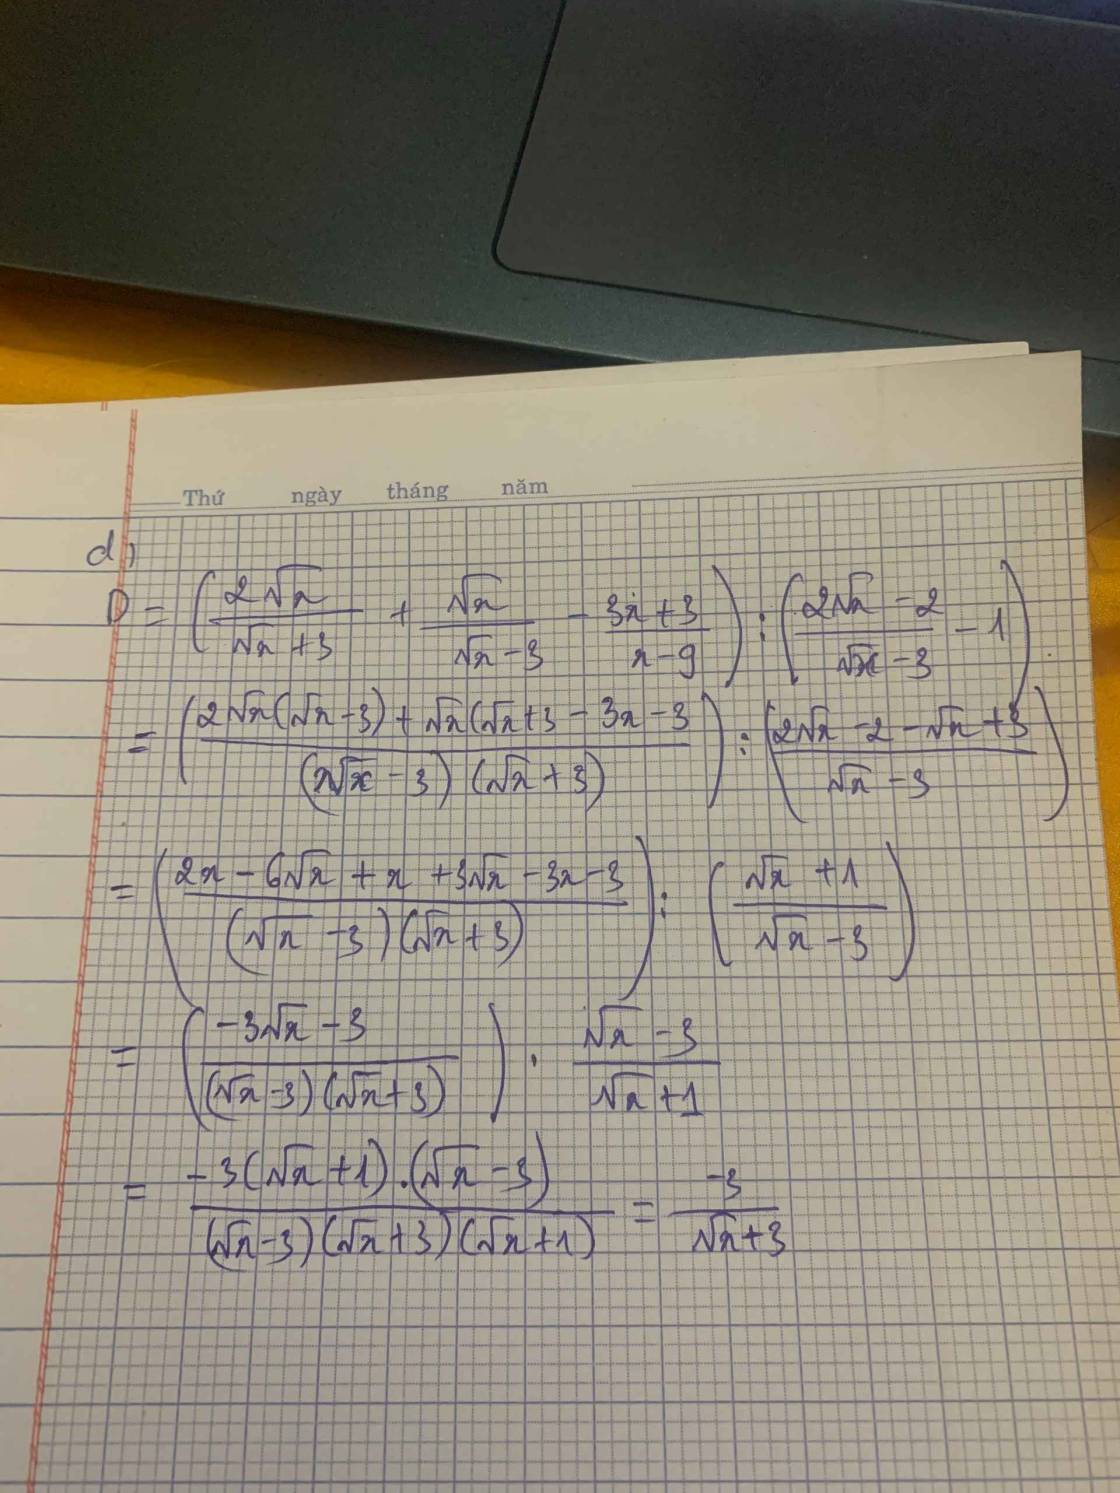 Thứ ngày tháng năm
d)
D = (2√x/(√x + 3) + √x/(√x - 3) - (3x + 3)/(x - 9)) : ((2√x - 2)/(√x - 3) - 1)
= ((2√x(√x - 3) + √x(√x + 3 - 3x - 3)/((√x - 3)(√x + 3))) : ((2√x - 2 - √x + 3)/(√x - 3))
= ((2x - 6√x + x + 3√x - 3x - 3)/((√x - 3)(√x + 3))) : ((√x + 1)/(√x - 3))
= ((-3√x - 3)/((√x - 3)(√x + 3))) . (√x - 3)/(√x + 1)
= (-3(√x + 1).(√x - 3))/((√x - 3)(√x + 3)(√x + 1)) = -3/(√x + 3)